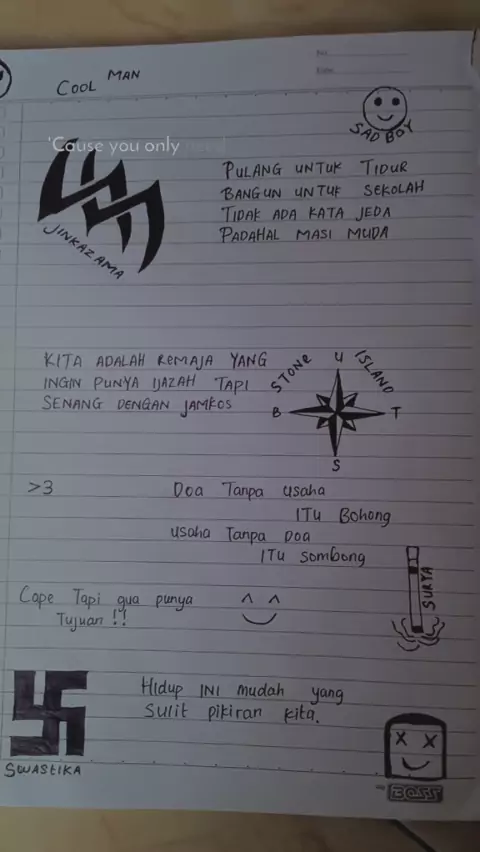 COOL MAN
SAD BOY
'Cause you only need
JINKAZAMA
PULANG UNTUK TIDUR
BANGUN UNTUK SEKOLAH
TIDAK ADA KATA JEDA
PADAHAL MASI MUDA
KITA ADALAH REMAJA YANG
INGIN PUNYA IJAZAH TAPI
SENANG DENGAN JAMKOS
STONE ISLAND
U
B T
S
>3
Doa Tanpa usaha
ITU Bohong
usaha Tanpa Doa
ITU sombong
SURYA
Cape Tapi gua punya
Tujuan !!
HIDUP INI mudah yang
Sulit pikiran kita.
SWASTIKA
BOSS